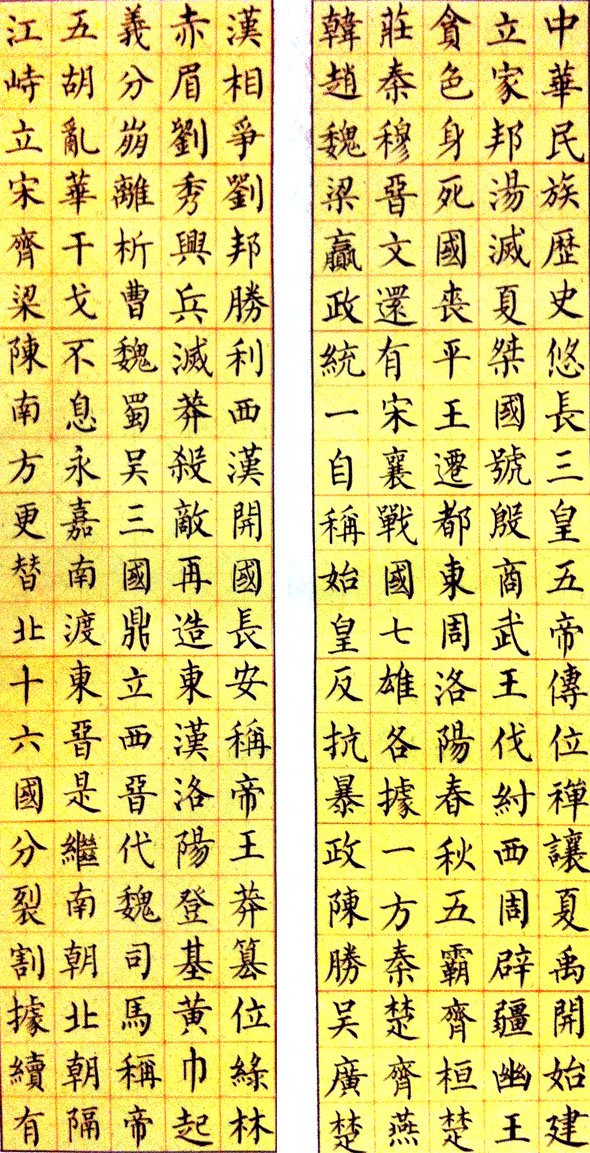 中華民族歷史悠長三皇五帝傳位禪讓夏禹開始建
立家邦湯滅夏桀國號殷商武王伐紂西周辟疆幽王
貪色身死國喪平王遷都東周洛陽春秋五霸齊桓楚
莊秦穆晉文還有宋襄戰國七雄各據一方秦楚齊燕
韓趙魏梁贏政統一自稱始皇反抗暴政陳勝吳廣楚
漢相爭劉邦勝利西漢開國長安稱帝王莽篡位綠林
赤眉劉秀興兵滅莽殺敵再造東漢洛陽登基黃巾起
義分崩離析曹魏蜀吳三國鼎立西晉代魏司馬稱帝
五胡亂華干戈不息永嘉南渡東晉是繼南朝北朝隔
江峙立宋齊梁陳南方更替北十六國分裂割據續有